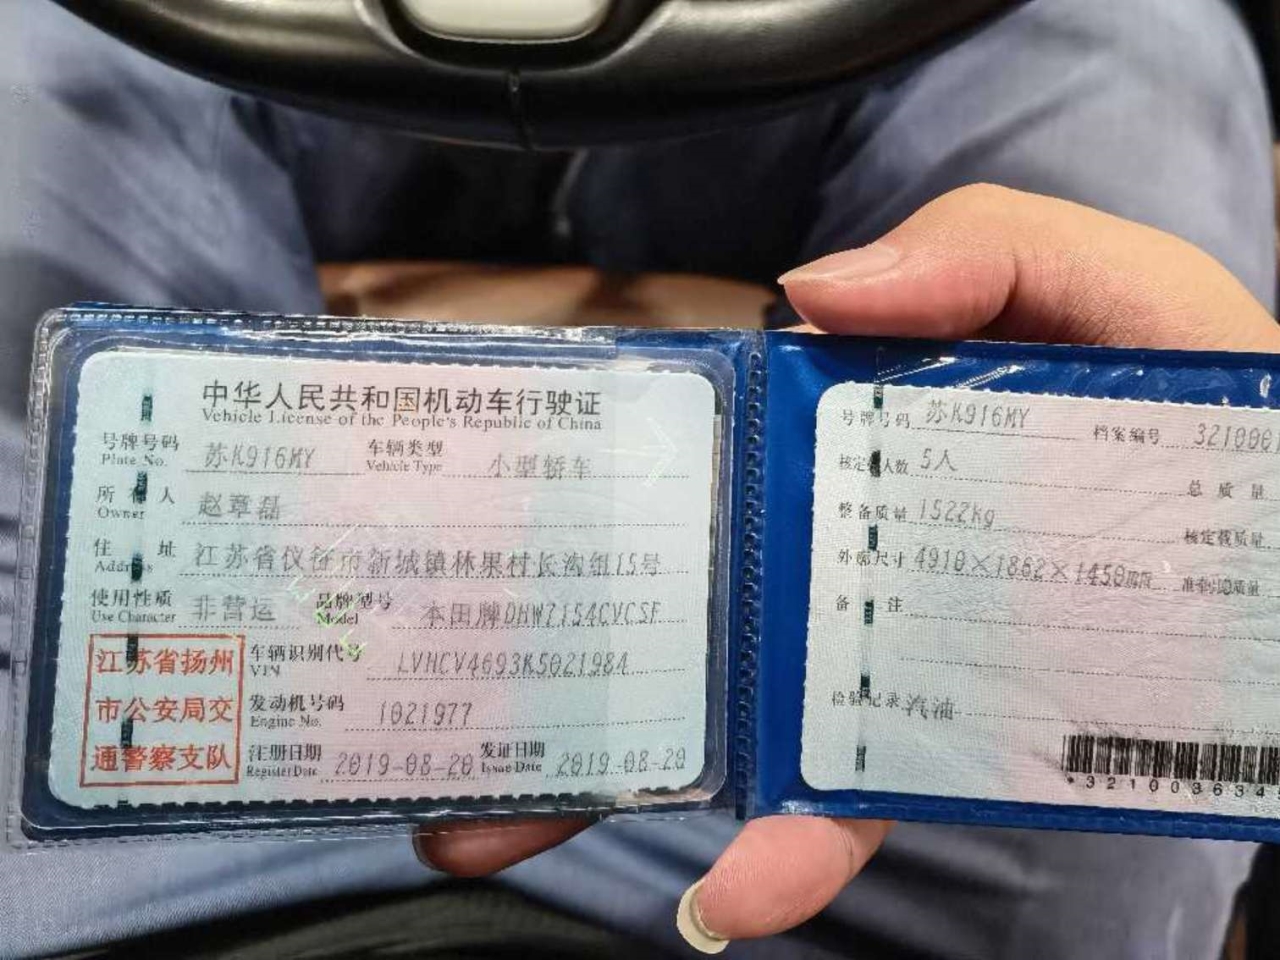 中华人民共和国机动车行驶证
Vehicle License of the People's Republic of China
号牌号码 苏K916MY 车辆类型 小型轿车
Plate No. Vehicle Type
所有人 赵章磊
Owner
住址 江苏省仪征市新城镇林果村长沟组15号
Address
使用性质 非营运 品牌型号 本田牌DHW7154CVCSF
Use Character Model
江苏省扬州
市公安局交
通警察支队
车辆识别代号 LVHCV4693K5021984
VIN
发动机号码 1021977
Engine No.
注册日期 2019-08-20 发证日期 2019-08-20
Register Date Issue Date
号牌号码 苏K916MY 档案编号 321000
核定人数 5人
总质量
整备质量 1522kg
核定载质量
外廓尺寸 4910×1862×1450mm
备注
检验记录 汽油
*321003634